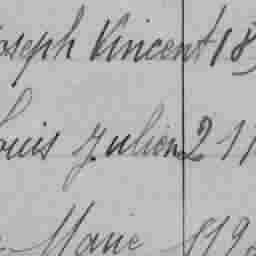 oseph Vincent 18
ouis Julien 211
Marie 119